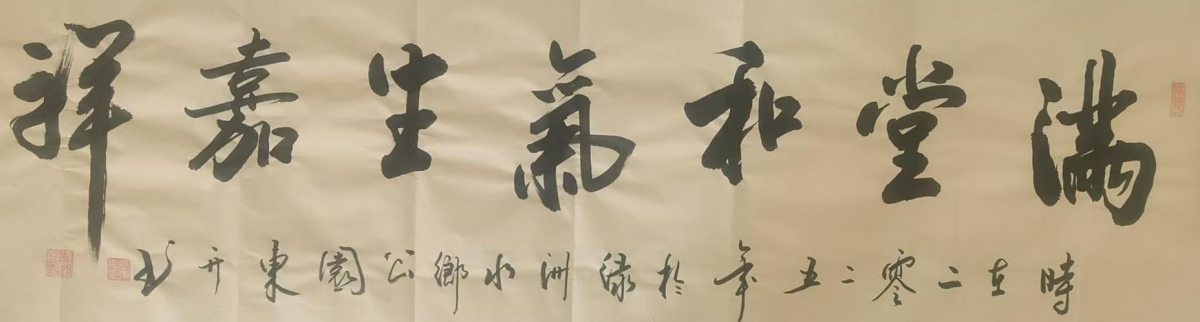 滿堂和氣生嘉祥
時在二零二五年於綠洲水鄉公園東升书